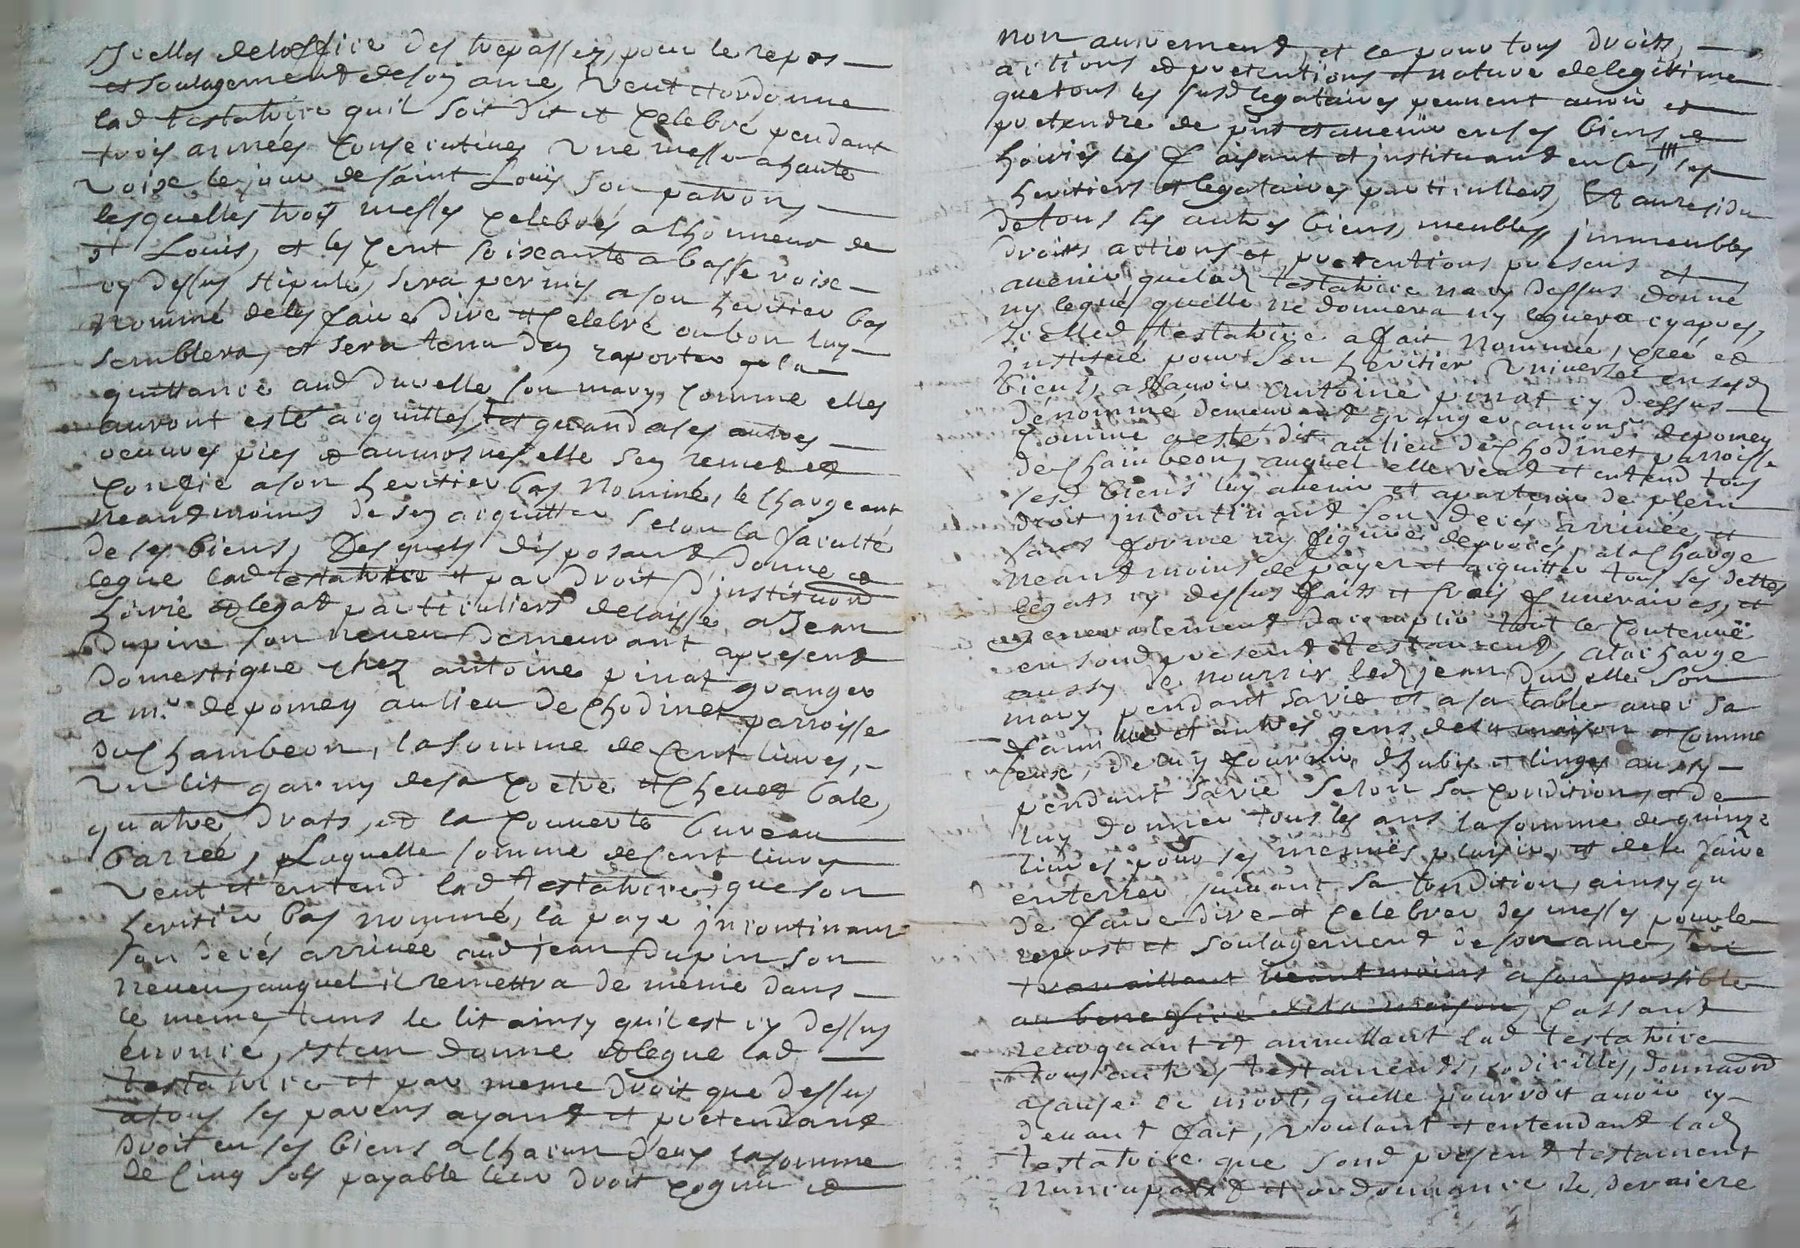 Icelles de loffice des trepassez, pour le repos
et soulagement de son ame, veut et ordonne
lad testatrice quil soit dit et celebré pendant
trois années consecutives une messe a haute
voixe le jour de saint Louis son patron,
lesquelles trois messes celebrés a lhonneur de
st Louis, et les cent soixante a basse voixe
cy dessus stipulé, sera permis a son heritier bas
nommé de les faire dire et celebré ou bon luy
semblera, et sera tenu den raporter
quittance aud duvelle son mary, comme elles
auront esté acquittes, et quand a ses autres
oeuvres pies et aumosnes elle sen remet et
confie a son heritier bas nommé, le chargeant
neantmoins de sen acquitter selon la faculté
de ses biens, desquels disposant donne et
legue lad testatrice et par droit dinstitu͞on
hoirie et legat particuliers delaisse a Jean
Dupin son neveu demeurant apresent
domestique chez antoine pinat granger
a mr. de pomey au lieu de Chodinet parroisse
de Chambeon, la somme de cent livres,
un lit garny de sa coetre et chevet bale,
quatre drats, et la couverte bureau
barrée, Laquelle somme de cent livres
veut et entend lad testatrice, que son
heritier bas nommé, la paye incontinant
son decés arrivée aud jean Dupin son
neveu, auquel il remettra de meme dans
le meme tems le lit ainsy quil est cy dessus
enoncé, donne et legue lad
testatrice et par meme droit que dessus
a tous ses parens ayant et pretendant
droit en ses biens a chacun deux la somme
de cinq sols payable leur droit cognu et
non autrement, et ce pour tous droits,
actions et pretentions et nature de legitime
que tous les susd legataires peuvent avoir et
pretendre de pnt et avenir en ses biens et
hoiries les faisant et instituant en ce, ses
heritiers et legataires particulliers, Et au residu
de tous ses autres biens, meubles, immeubles
droits actions et pretentions presens et
avenir, que lad testatrice na cy dessus donné
ny legué, quelle ne donnera ny leguera cy apres,
Icelle d. testatrice a fait nommée, créé et
institué pour son heritier universel en sesd
biens, assavoir antoine pinat cy dessus
dénommé demeurant granger a monsr. depomey
comme a esté dit au lieu de Chodinet parroisse
de Chambeon, auquel elle veud et entend tous
sesd biens luy avenir et apartenir de plein
droit incontinant son decés arrivée, et
sans forme ny figure de procés, a la charge
neantmoins de payer et acquitter tous ses dettes
legats cy dessus faits et frais funeraires, et
generalement dacomplir tout le contenuë
en sond present testament, a la charge
aussy de nourrir led jean duvelle son
mary pendant sa vie et a sa table avec sa
famille et autres gens de sa maison et comme
ceux, de luy fournir dhabis et linges aussy
pendant sa vie selon sa condition, et de
luy donner tous les ans la somme de quinze
livres pour ses menuës plaisir, et de le faire
enterrer suivant sa condition, ainsy qu
de faire dire et celebrer des messes pour le
repost et soulagement de son ame, en
travaillant neantmoins a son possible
au benefice de la maison, cassant
revoquant et annullant lad testatrice
tous autres testaments, codicilles, donna͞on
a cause de mort, quelle pourroit avoir cy
devant fait, voulant et entendant lad
testatrice que sond present testament
nuncupatif et ordonnance de derniere